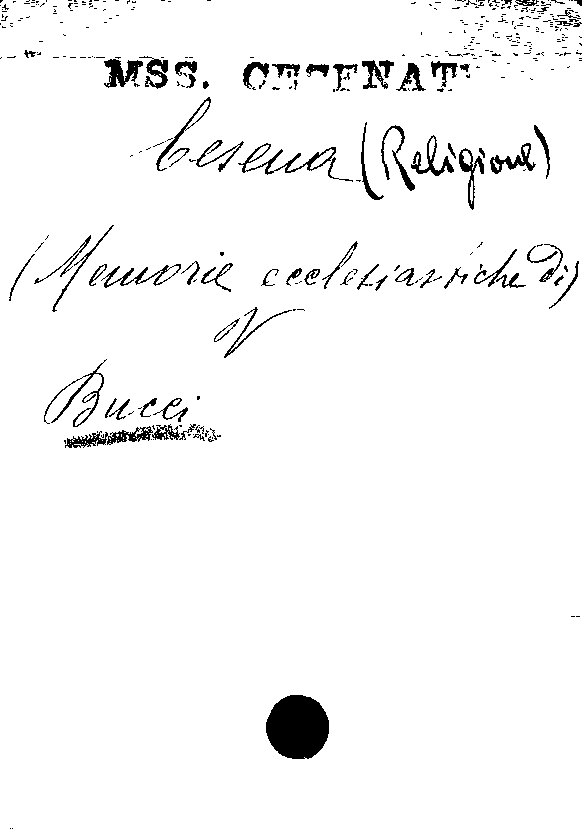 MSS. CESENATI
Cesena (Religione)
(Memorie ecclesiastiche di)
V
Bucci